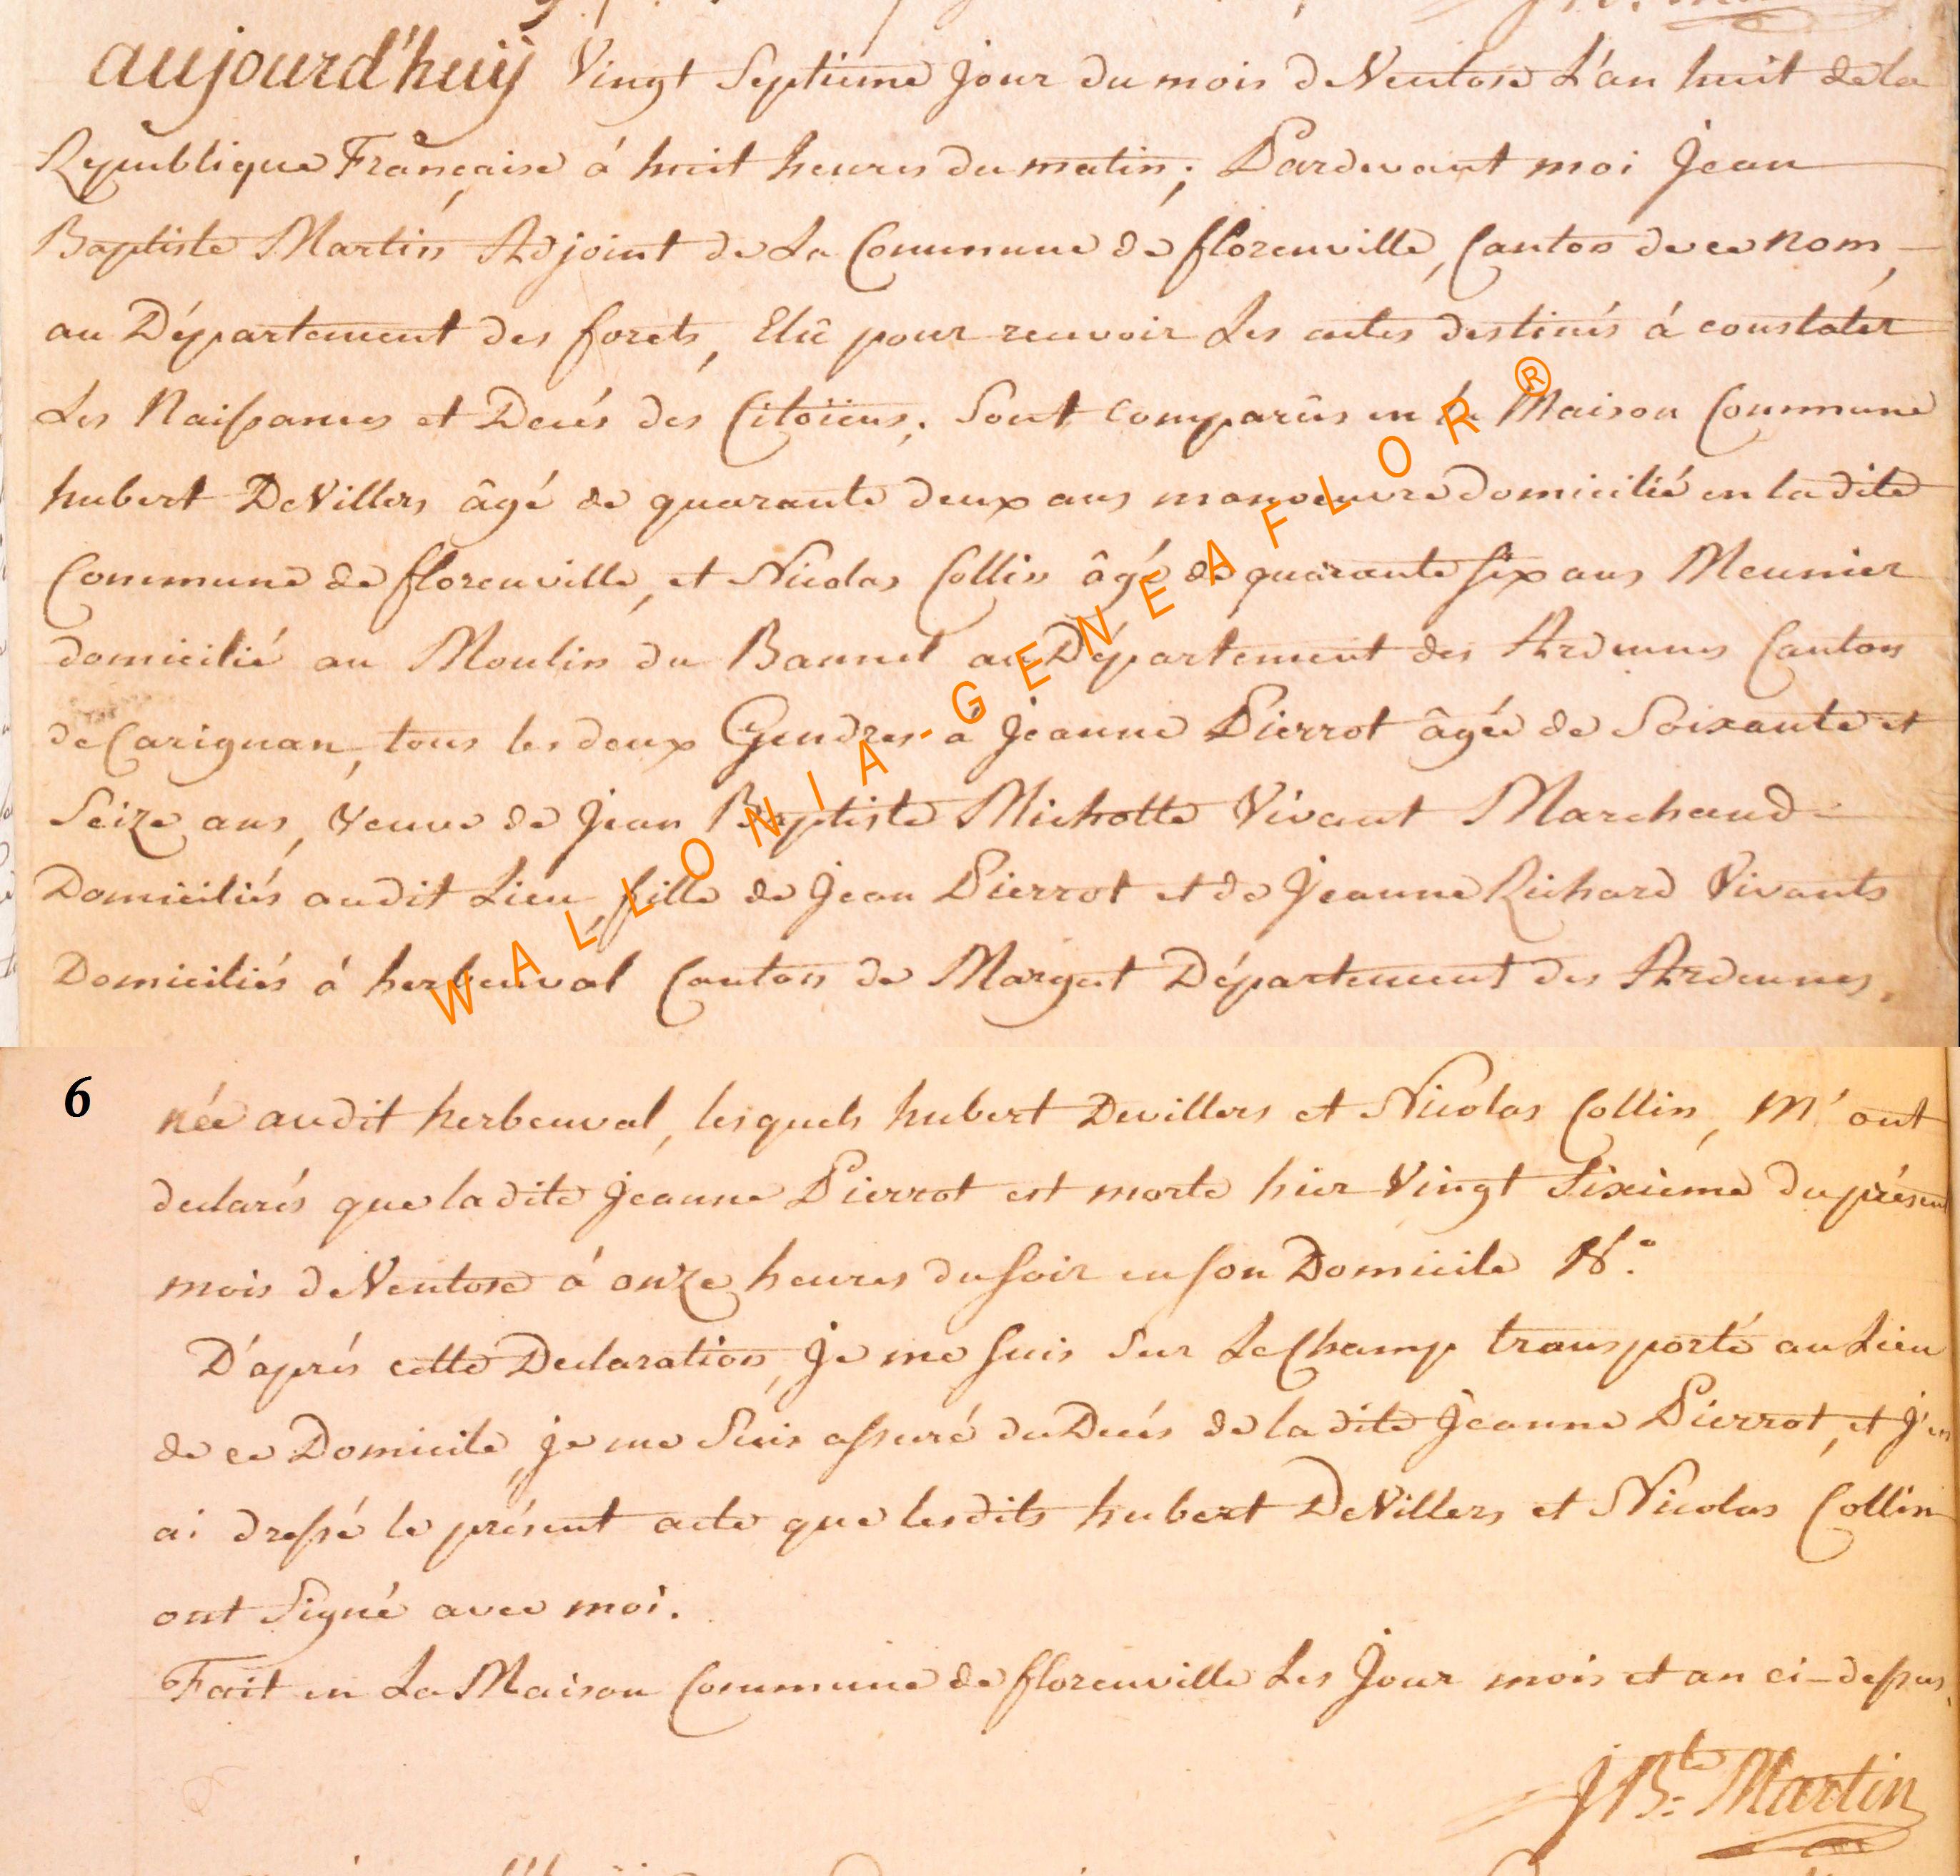 aujourd'huÿ Vingt Septieme Jour du mois de Ventose L'an huit de la
Republique Française á huit heures du matin; Pardevant moi Jean
Baptiste Martin Adjoint de La Commune de florenville, Canton de ce nom,
au Département des forets, Elû pour recevoir Les actes destinés á constater
Les Naissances et Decés des Citoïens; Sont comparûs en la Maison Commune
hubert DeVillers âgé de quarante deux ans manoeuvre domicilié en la dite
Commune de florenville, et Nicolas Collin âgé de quarante six ans Meunier
domicilié au Moulin du Bannel au Département des Ardennes Canton
de Carignan, tous les deux Gendres á Jeanne Pierrot âgée de Soixante et
Seize ans, Veuve de Jean Baptiste Michotte Vivant Marchand
Domiciliés audit Lieu, fille de Jean Pierrot et de Jeanne Richard Vivants
Domiciliés á herbeuval Canton de Margut Département des Ardennes,
WALLONIA-GENEAFLOR®
6
née audit herbeuval, lesquels hubert Devillers et Nicolas Collin, M'ont
declarés que ladite Jeanne Pierrot est morte hier Vingt Sixieme du présent
mois de Ventose á onze heures du soir en son Domicile N°.
D'aprés cette Declaration, Je me suis Sur Le Champ transporté au Lieu
de ce Domicile, je me Suis assuré du Decés de la dite Jeanne Pierrot, et J'en
ai dressé le présent acte que lesdits hubert DeVillers et Nicolas Collin
ont Signé avec moi.
Fait en La Maison Commune de florenville Les Jour mois et an ci-dessus.
J Bte: Martin